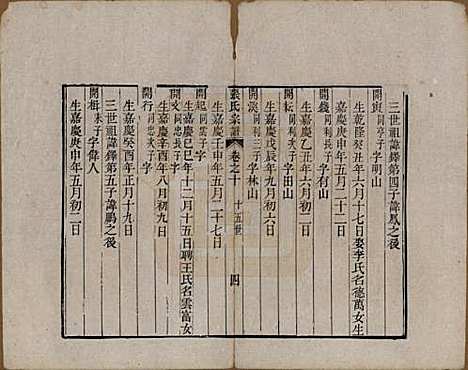 三世祖諱鐸第四子諱鳳之後
開與同亭子字明山
生乾隆癸丑年六月十七日娶李氏名德萬女生
嘉慶庚申年五月二十二日
開錢同利長子字有山
嘉慶乙丑年六月初二日
開耘同利次子字出山
生嘉慶戊辰年九月初六日
開渶同利三子字林山
張氏宗譜
卷之十
十五世
四
生嘉慶壬申年五月二十七日
開起同雲子字
生嘉慶己巳年十二月十五日聘王氏名雲富女
開文同忠長子字
生嘉慶辛未年八月初九日
開行同忠次子字
生嘉慶癸酉年正月十九日
三世祖諱鐸第五子諱鵬之後
開楫末子字偉人
生嘉慶庚申年五月初二日